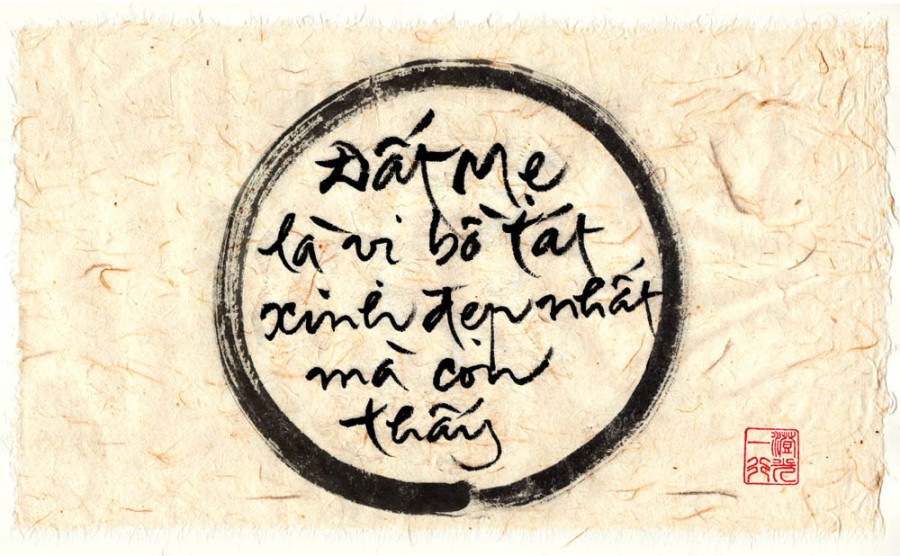 Đất Mẹ
là vị bồ tát
xinh đẹp nhất
mà con
thấy
澄光
一行